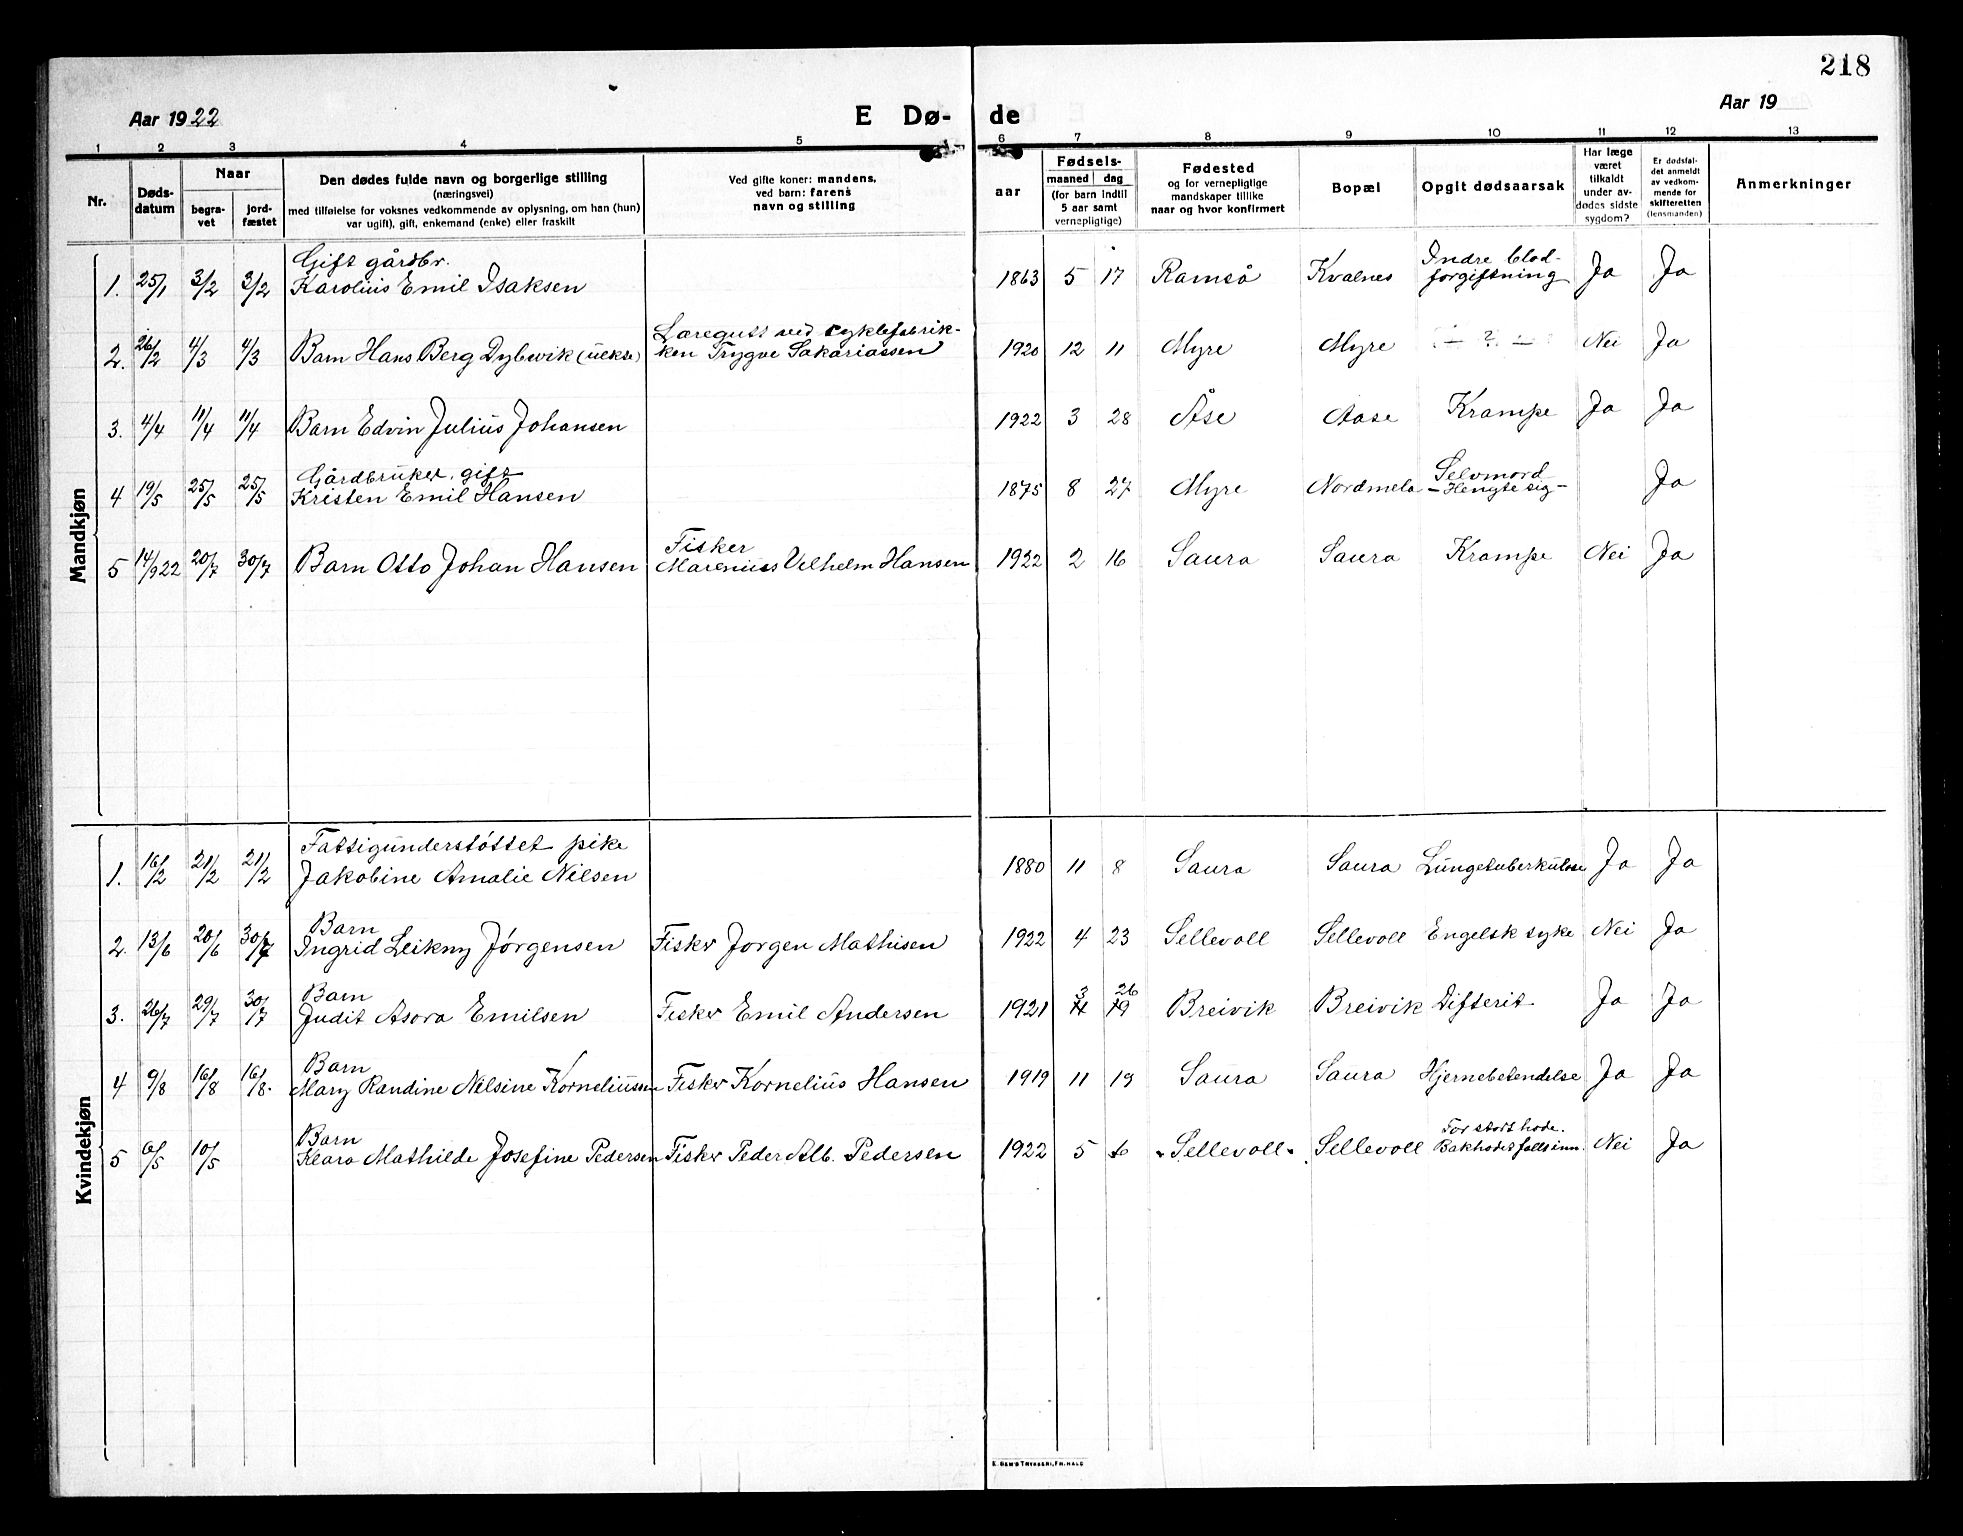 218
Aar 1922
E Dø-
de
Aar 19
1 2 3 4 5 6 7 8 9 10 11 12 13
Nr.
Døds-
datum
Naar
begra-
vet
jord-
fæstet
Den dødes fulde navn og borgerlige stilling
(næringsvei)
med tilføielse for voksnes vedkommende av oplysning, om han (hun)
var ugift), gift, enkemand (enke) eller fraskilt
Ved gifte koner: mandens,
ved barn: farens
navn og stilling
aar
Fødsels-
maaned dag
(for barn indtil
5 aar samt
vernepligtige)
Fødested
og for vernepligtige
mandskaper tillike
naar og hvor konfirmert
Bopæl
Opgit dødsaarsak
Har læge
været
tilkaldt
under av-
dødes sidste
sygdom?
Er dødsfal-
det anmeldt
av vedkom-
mende for
skifteretten
(lensmanden)
Anmerkninger
Mandkjøn
Gift gårdbr. Indre blod-
1. 25/1 3/2 3/2 Karolius Emil Isaksen 1863 5 17 Ramså Kvalnes forgiftning Ja Ja
Læregutt ved cyklefabrik-
2. 26/2 4/3 4/3 Barn Hans Berg Dybwik (uekte) ken Trygve Sakariassen 1920 12 11 Myre Myre — ? — Nei Ja
3. 4/4 11/4 11/4 Barn Edvin Julius Johansen 1922 3 28 Åse Aase Krampe Ja Ja
Gårdbruker, gift Selvmord
4 19/5 25/5 25/5 Kristen Emil Hansen 1875 8 27 Myre Nordmela — Hengte sig — Ja
Fisker
5 14/9 22 20/7 30/7 Barn Otto Johan Hansen Marenius Vilhelm Hansen 1922 2 16 Saura Saura Krampe Nei Ja
Kvindekjøn
Fattigunderstøttet pike
1. 16/2 21/2 21/2 Jakobine Amalie Nilsen 1880 11 8 Saura Saura Lungetuberkulose Ja Ja
Barn
2. 13/6 20/6 30/7 Ingrid Leikny Jørgensen Fisker Jørgen Mathisen 1922 4 23 Sellevoll Sellevoll Engelsk syke Nei Ja
Barn 3 26
3. 26/7 29/7 30/7 Judit Asora Emilsen Fisker Emil Andersen 1921 4 19 Breivik Breivik Difterit Ja Ja
Barn
4 9/8 16/8 16/8. Mary Randine Nilsine Korneliussen Fisker Kornelius Hansen 1919 11 19 Saura Saura Hjernebetendelse Ja Ja
Barn For stort hode.
5 6/5 10/5 Klara Mathilde Josefine Pedersen Fisker Peder Alb. Pedersen 1922 5 6 Sellevoll Sellevoll Bakhodet falt inn. Nei Ja
E. SEM'S TRYKKERI, FR.HALD